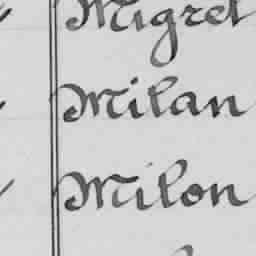 Migret
Milan
Milon